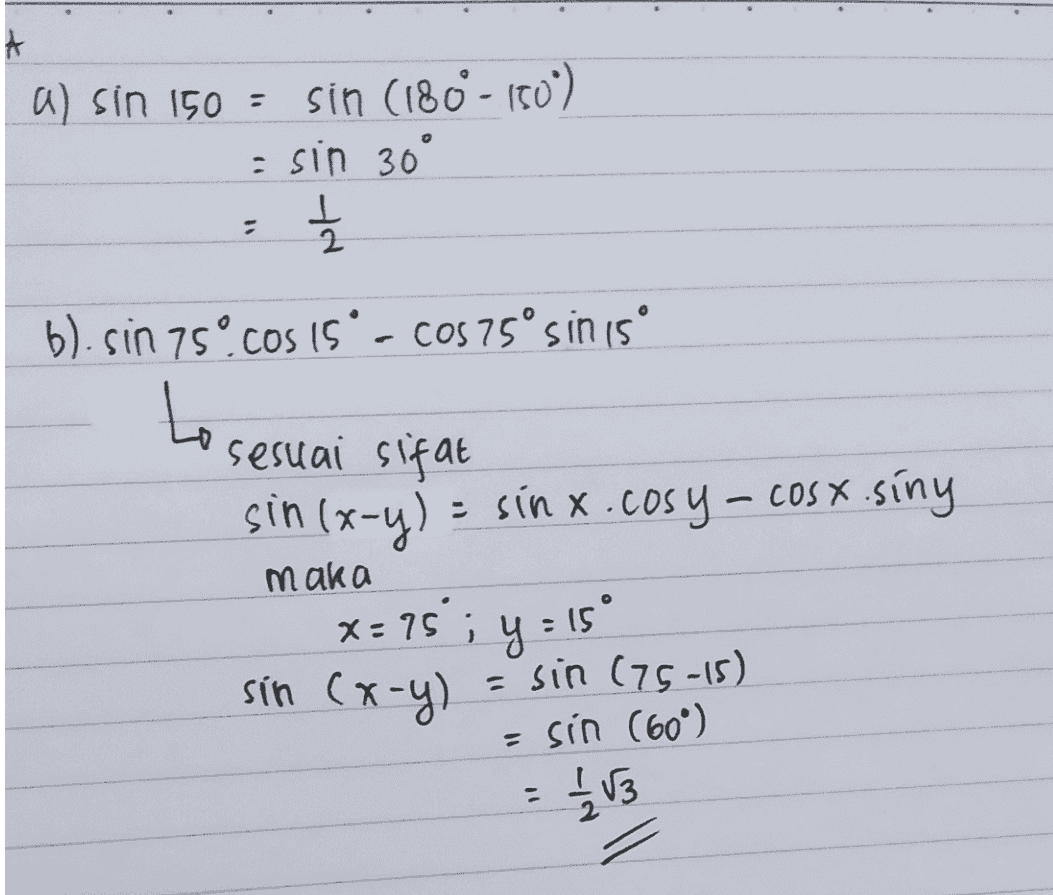 A
a) sin 150 = sin (180° - 150°)
= sin 30°
= 1/2
b). sin 75°. cos 15° - cos 75° sin 15°
sesuai sifat
sin (x-y) = sin x . cos y - cos x . sin y
maka
x = 75° ; y = 15°
sin (x-y) = sin (75-15)
= sin (60°)
= 1/2 √3